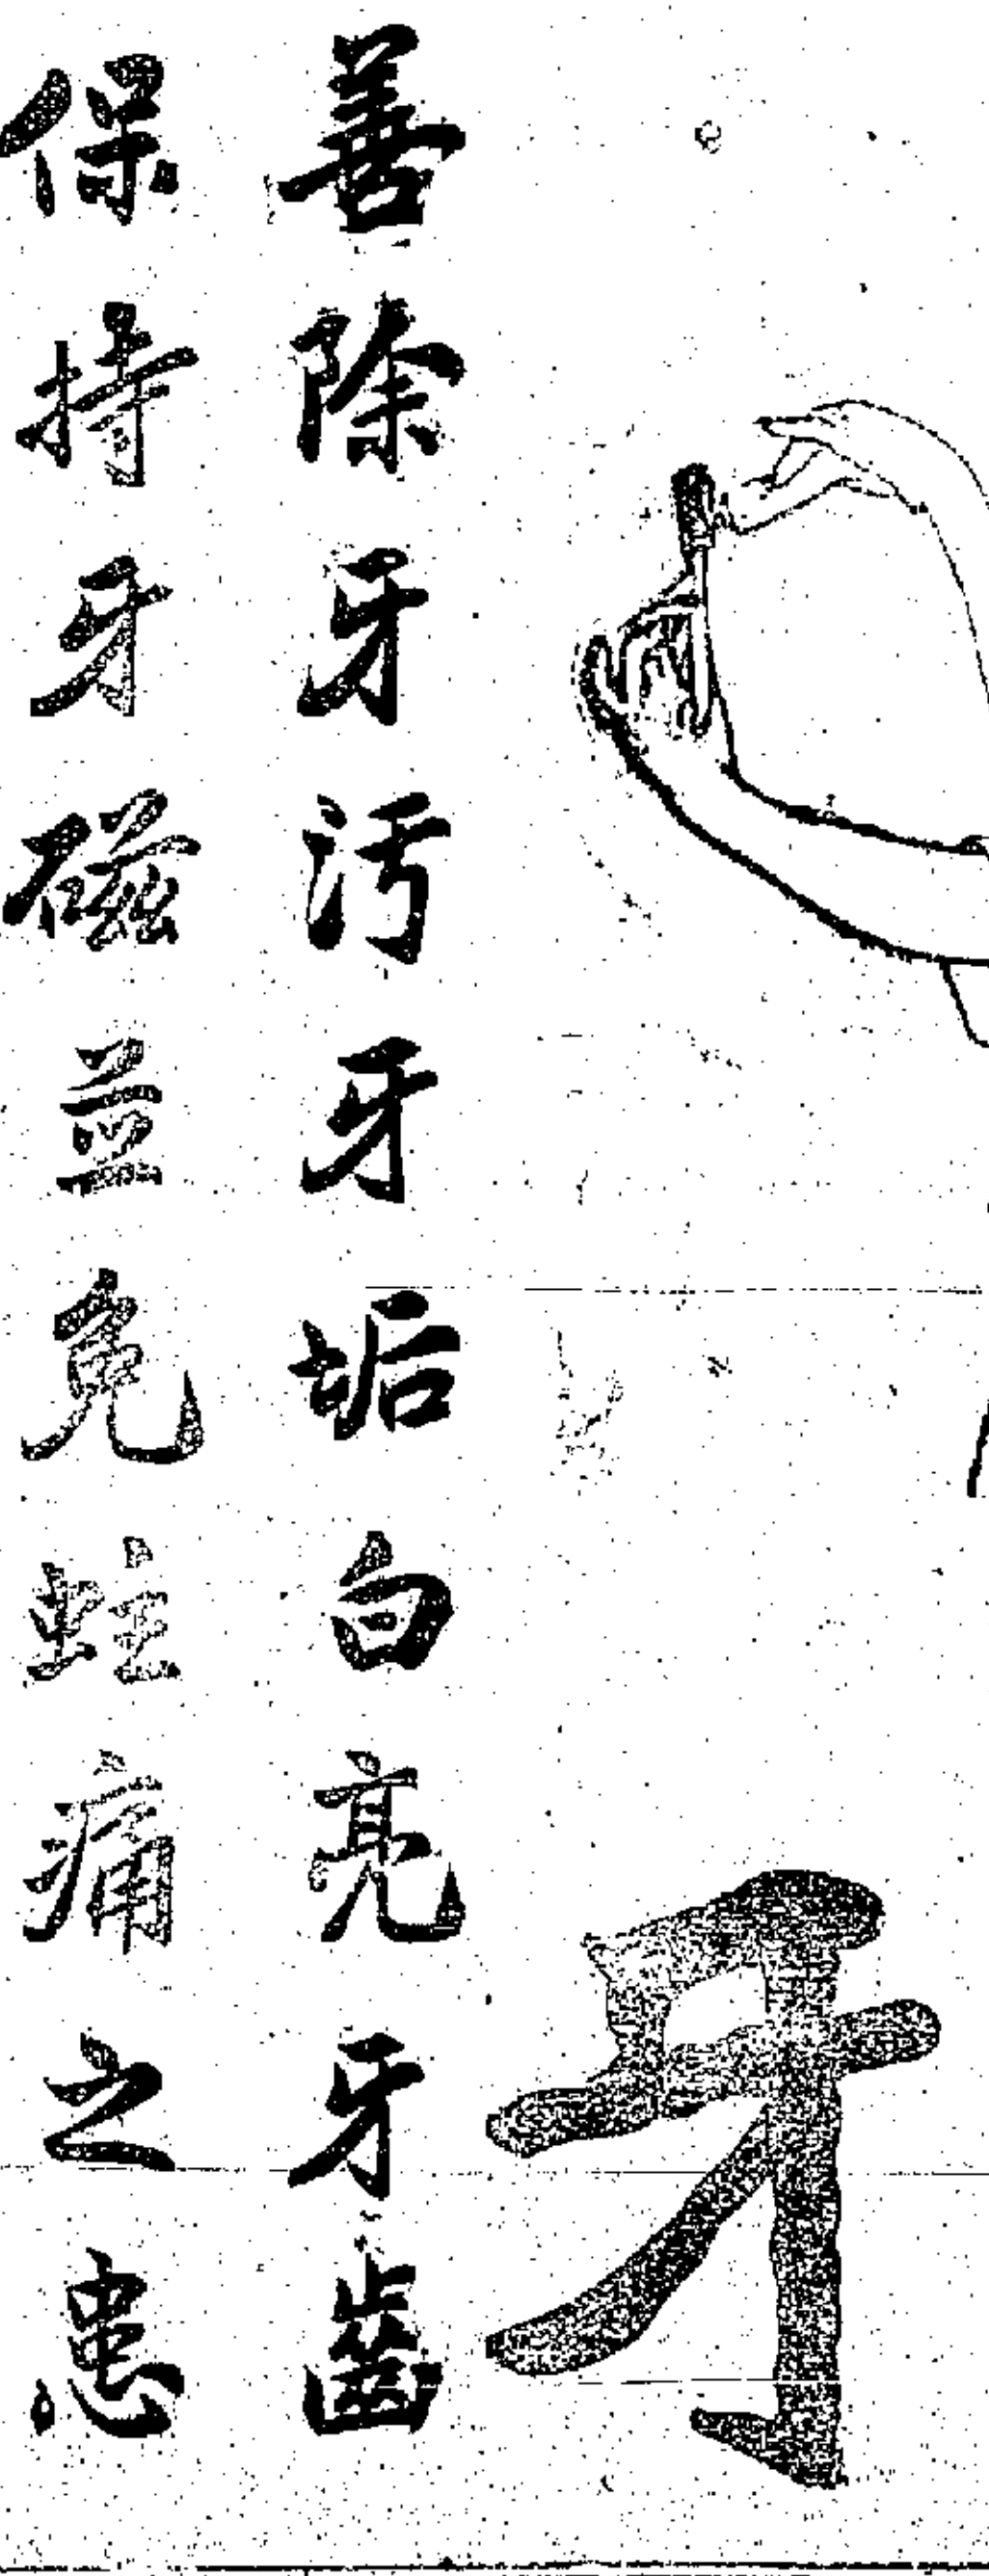 牙
善除牙污牙垢白亮牙齒
保持牙磁並免蛀痛之患